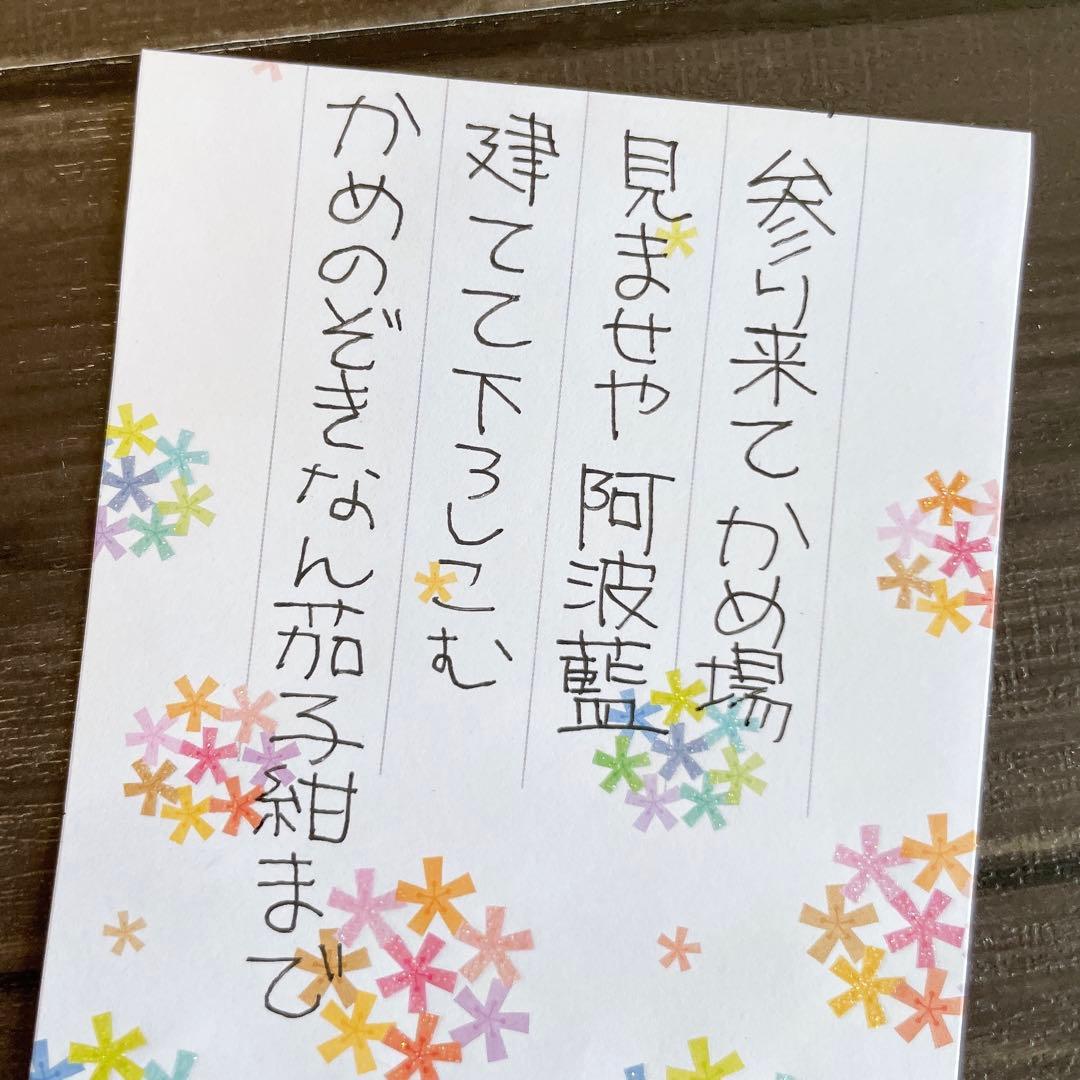 参り来てかめ場
見ませや阿波藍
建てて下ろしこむ
かめのぞきなん茄子紺まで